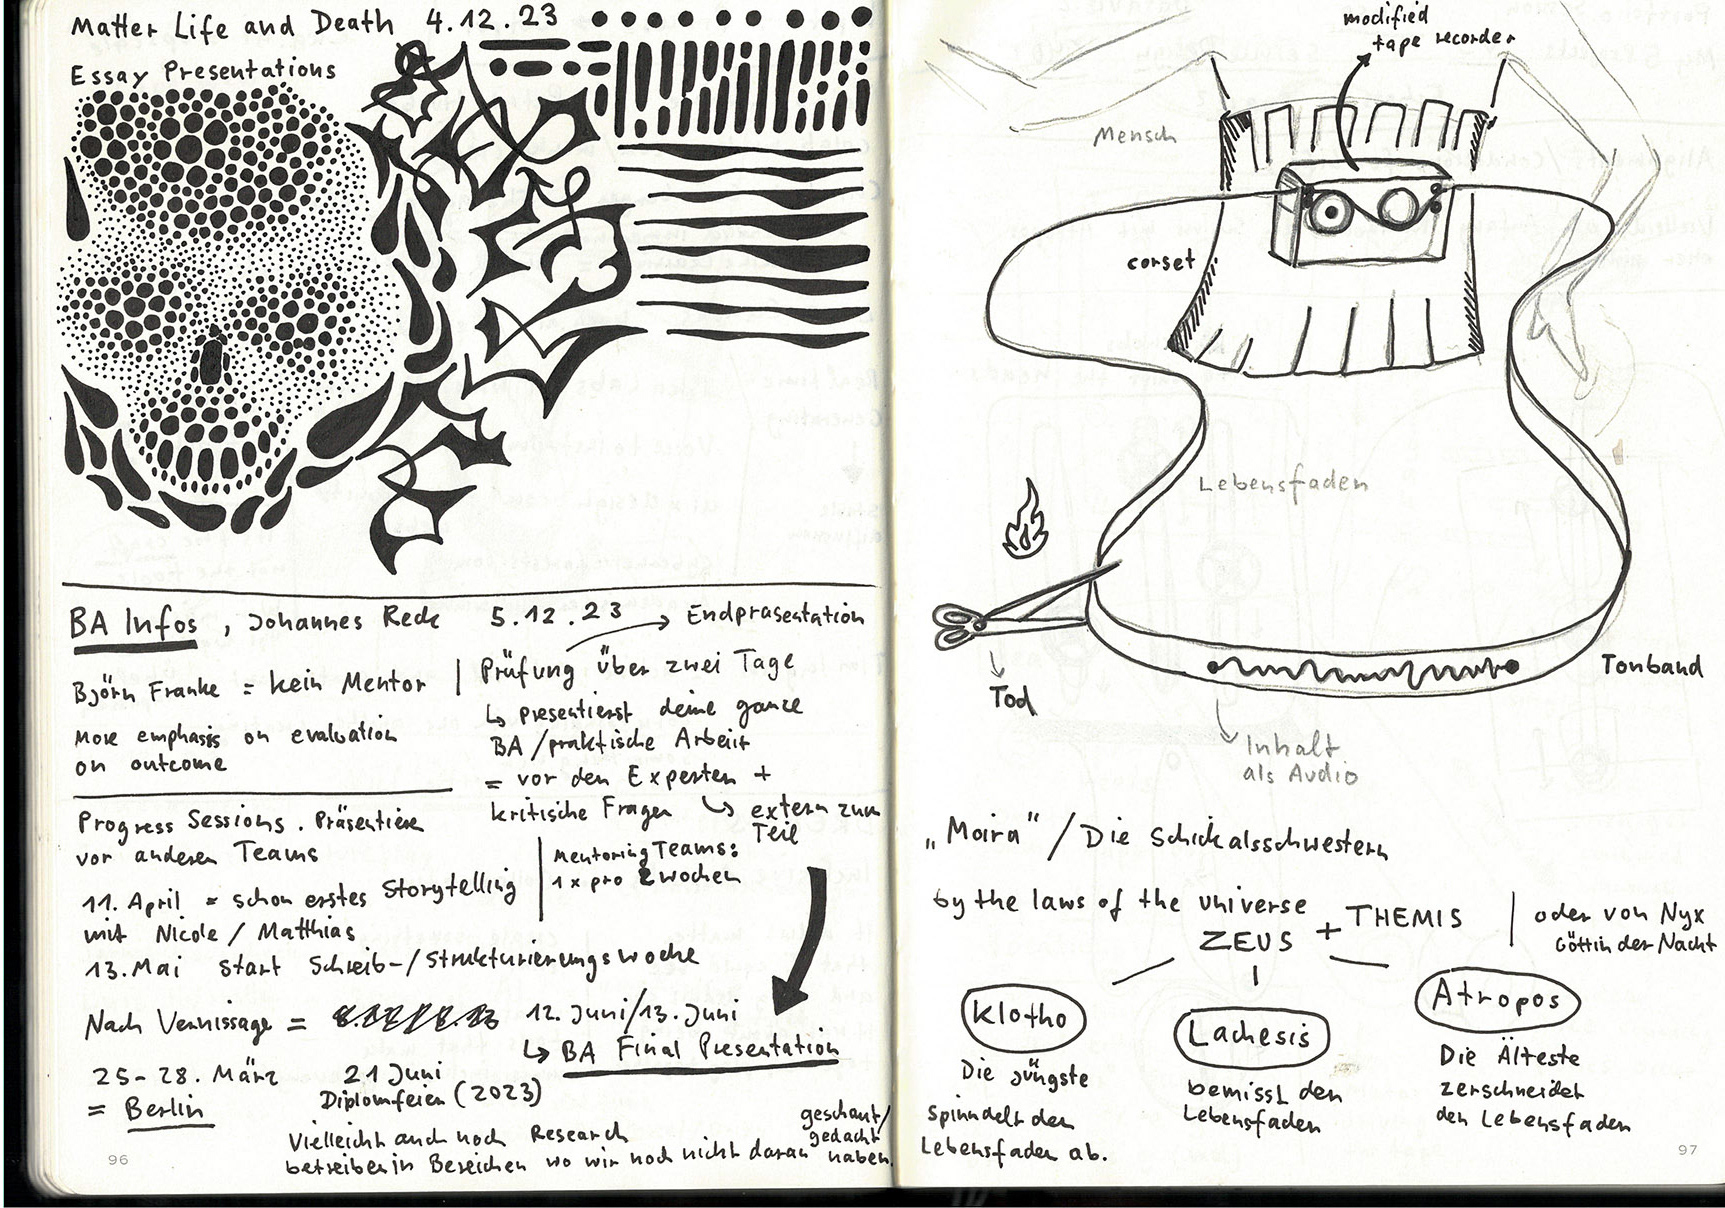 Matter Life and Death 4.12.23
Essay Presentations
BA Infos, Johannes Reck 5.12.23
Björn Franke = kein Mentor
More emphasis on evaluation
on outcome
→ Endpräsentation
Prüfung über zwei Tage
↳ presentierst deine ganze
BA/praktische Arbeit
= vor den Experten +
kritische Fragen ↳ extern zum
Teil
Progress Sessions. Präsentiere
vor anderen Teams
Mentoring Teams:
1x pro 2 wochen
11. April = schon erstes Storytelling
mit Nicole / Matthias
13. Mai Start Schreib-/Strukturierungswoche
Nach Vernissage = 12. Juni/13. Juni
↳ BA Final Presentation
25-28. März
= Berlin
21 Juni
Diplomfeier (2023)
Vielleicht auch noch Research
betreiben in Bereichen wo wir noch nicht daran
geschaut/
gedacht
haben.
96
modified
tape recorder
Mensch
corset
Lebensfaden
Tod
Tonband
Inhalt
als Audio
„Moira" / Die Schicksalsschwestern
by the laws of the universe
ZEUS + THEMIS
oder von Nyx
Göttin der Nacht
Klotho
Die Jüngste
spinndelt den
Lebensfaden ab.
Lachesis
bemisst den
Lebensfaden
Atropos
Die Älteste
zerschneidet
den Lebensfaden
97